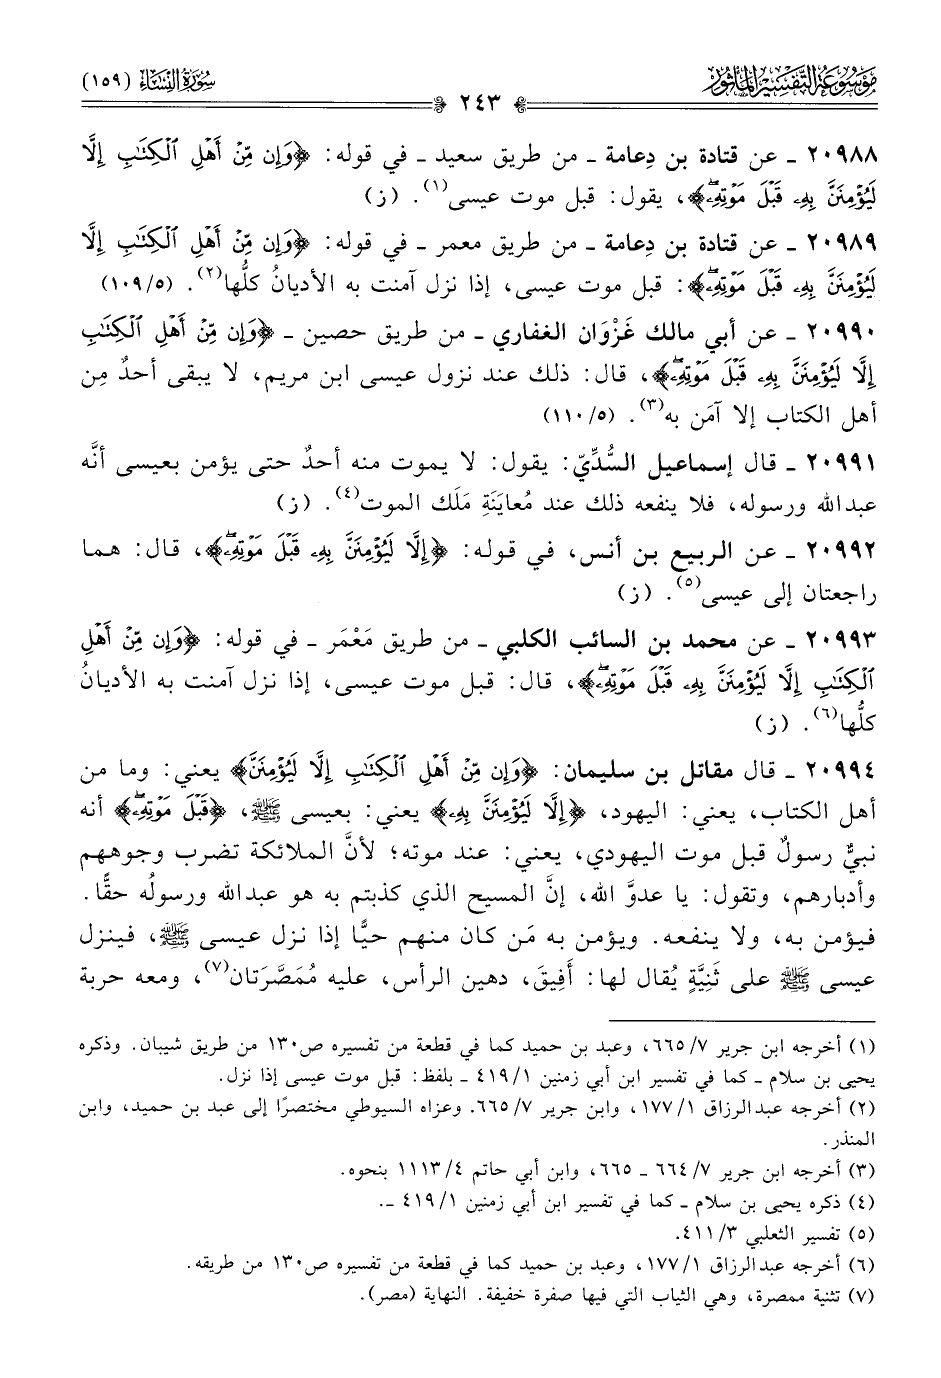 مَوْسُوعَة التَّفْسِير المَأْثُور
سُورَة النِّسَاء (١٥٩)
٢٤٣
٢٠٩٨٨ ـ عن قتادة بن دِعامة ـ من طريق سعيد ـ في قوله: ﴿وَإِن مِّنْ أَهْلِ ٱلْكِتَٰبِ إِلَّا
لَيُؤْمِنَنَّ بِهِۦ قَبْلَ مَوْتِهِۦۖ﴾، يقول: قبل موت عيسى(١). (ز)
٢٠٩٨٩ ـ عن قتادة بن دِعامة ـ من طريق معمر ـ في قوله: ﴿وَإِن مِّنْ أَهْلِ ٱلْكِتَٰبِ إِلَّا
لَيُؤْمِنَنَّ بِهِۦ قَبْلَ مَوْتِهِۦۖ﴾: قبل موت عيسى، إذا نزل آمنت به الأديانُ كلُّها(٢). (١٠٩/٥)
٢٠٩٩٠ ـ عن أبي مالك غَزْوَان الغفاري ـ من طريق حصين ـ ﴿وَإِن مِّنْ أَهْلِ ٱلْكِتَٰبِ
إِلَّا لَيُؤْمِنَنَّ بِهِۦ قَبْلَ مَوْتِهِۦۖ﴾، قال: ذلك عند نزول عيسى ابن مريم، لا يبقى أحدٌ مِن
أهل الكتاب إلا آمَن به(٣). (١١٠/٥)
٢٠٩٩١ ـ قال إسماعيل السُّدِّيّ: يقول: لا يموت منه أحدٌ حتى يؤمن بعيسى أنَّه
عبدالله ورسوله، فلا ينفعه ذلك عند مُعاينَةِ مَلَك الموت(٤). (ز)
٢٠٩٩٢ ـ عن الربيع بن أنس، في قوله: ﴿إِلَّا لَيُؤْمِنَنَّ بِهِۦ قَبْلَ مَوْتِهِۦۖ﴾، قال: هما
راجعتان إلى عيسى(٥). (ز)
٢٠٩٩٣ ـ عن محمد بن السائب الكلبي ـ من طريق مَعْمَر ـ في قوله: ﴿وَإِن مِّنْ أَهْلِ
ٱلْكِتَٰبِ إِلَّا لَيُؤْمِنَنَّ بِهِۦ قَبْلَ مَوْتِهِۦۖ﴾، قال: قبل موت عيسى، إذا نزل آمنت به الأديانُ
كلُّها(٦). (ز)
٢٠٩٩٤ ـ قال مقاتل بن سليمان: ﴿وَإِن مِّنْ أَهْلِ ٱلْكِتَٰبِ إِلَّا لَيُؤْمِنَنَّ﴾ يعني: وما من
أهل الكتاب، يعني: اليهود، ﴿إِلَّا لَيُؤْمِنَنَّ بِهِۦ﴾ يعني: بعيسى ﷺ، ﴿قَبْلَ مَوْتِهِۦۖ﴾ أنه
نبيٌّ رسولٌ قبل موت اليهودي، يعني: عند موته؛ لأنَّ الملائكة تضرب وجوههم
وأدبارهم، وتقول: يا عدوَّ الله، إنَّ المسيح الذي كذبتم به هو عبدالله ورسولُه حقًّا.
فيؤمن به، ولا ينفعه. ويؤمن به مَن كان منهم حيًّا إذا نزل عيسى ﷺ، فينزل
عيسى ﷺ على ثَنِيَّةٍ يُقال لها: أَفِيقَ، دهين الرأس، عليه مُمَصَّرَتان(٧)، ومعه حربة
(١) أخرجه ابن جرير ٦٦٥/٧، وعبد بن حميد كما في قطعة من تفسيره ص١٣٠ من طريق شيبان. وذكره
يحيى بن سلام ـ كما في تفسير ابن أبي زمنين ٤١٩/١ ـ بلفظ: قبل موت عيسى إذا نزل.
(٢) أخرجه عبدالرزاق ١٧٧/١، وابن جرير ٦٦٥/٧. وعزاه السيوطي مختصرًا إلى عبد بن حميد، وابن
المنذر.
(٣) أخرجه ابن جرير ٦٦٤/٧ ـ ٦٦٥، وابن أبي حاتم ١١١٣/٤ بنحوه.
(٤) ذكره يحيى بن سلام ـ كما في تفسير ابن أبي زمنين ٤١٩/١ ـ.
(٥) تفسير الثعلبي ٤١١/٣.
(٦) أخرجه عبدالرزاق ١٧٧/١، وعبد بن حميد كما في قطعة من تفسيره ص١٣٠ من طريقه.
(٧) تثنية ممصرة، وهي الثياب التي فيها صفرة خفيفة. النهاية (مصر).